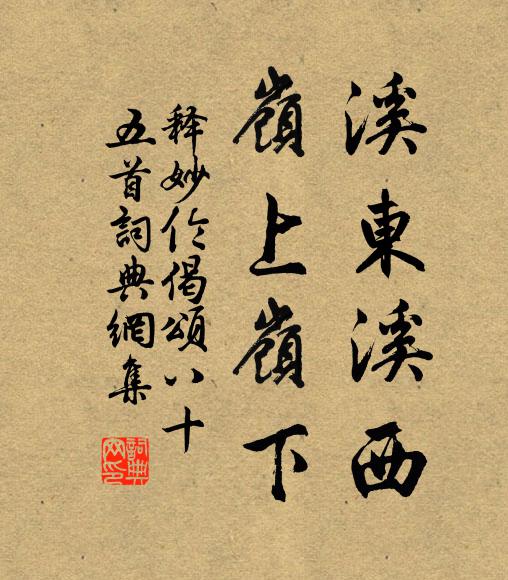 溪東溪西
嶺上嶺下
釋妙伦偈頌八十
五首詞典網集
詞典
网印